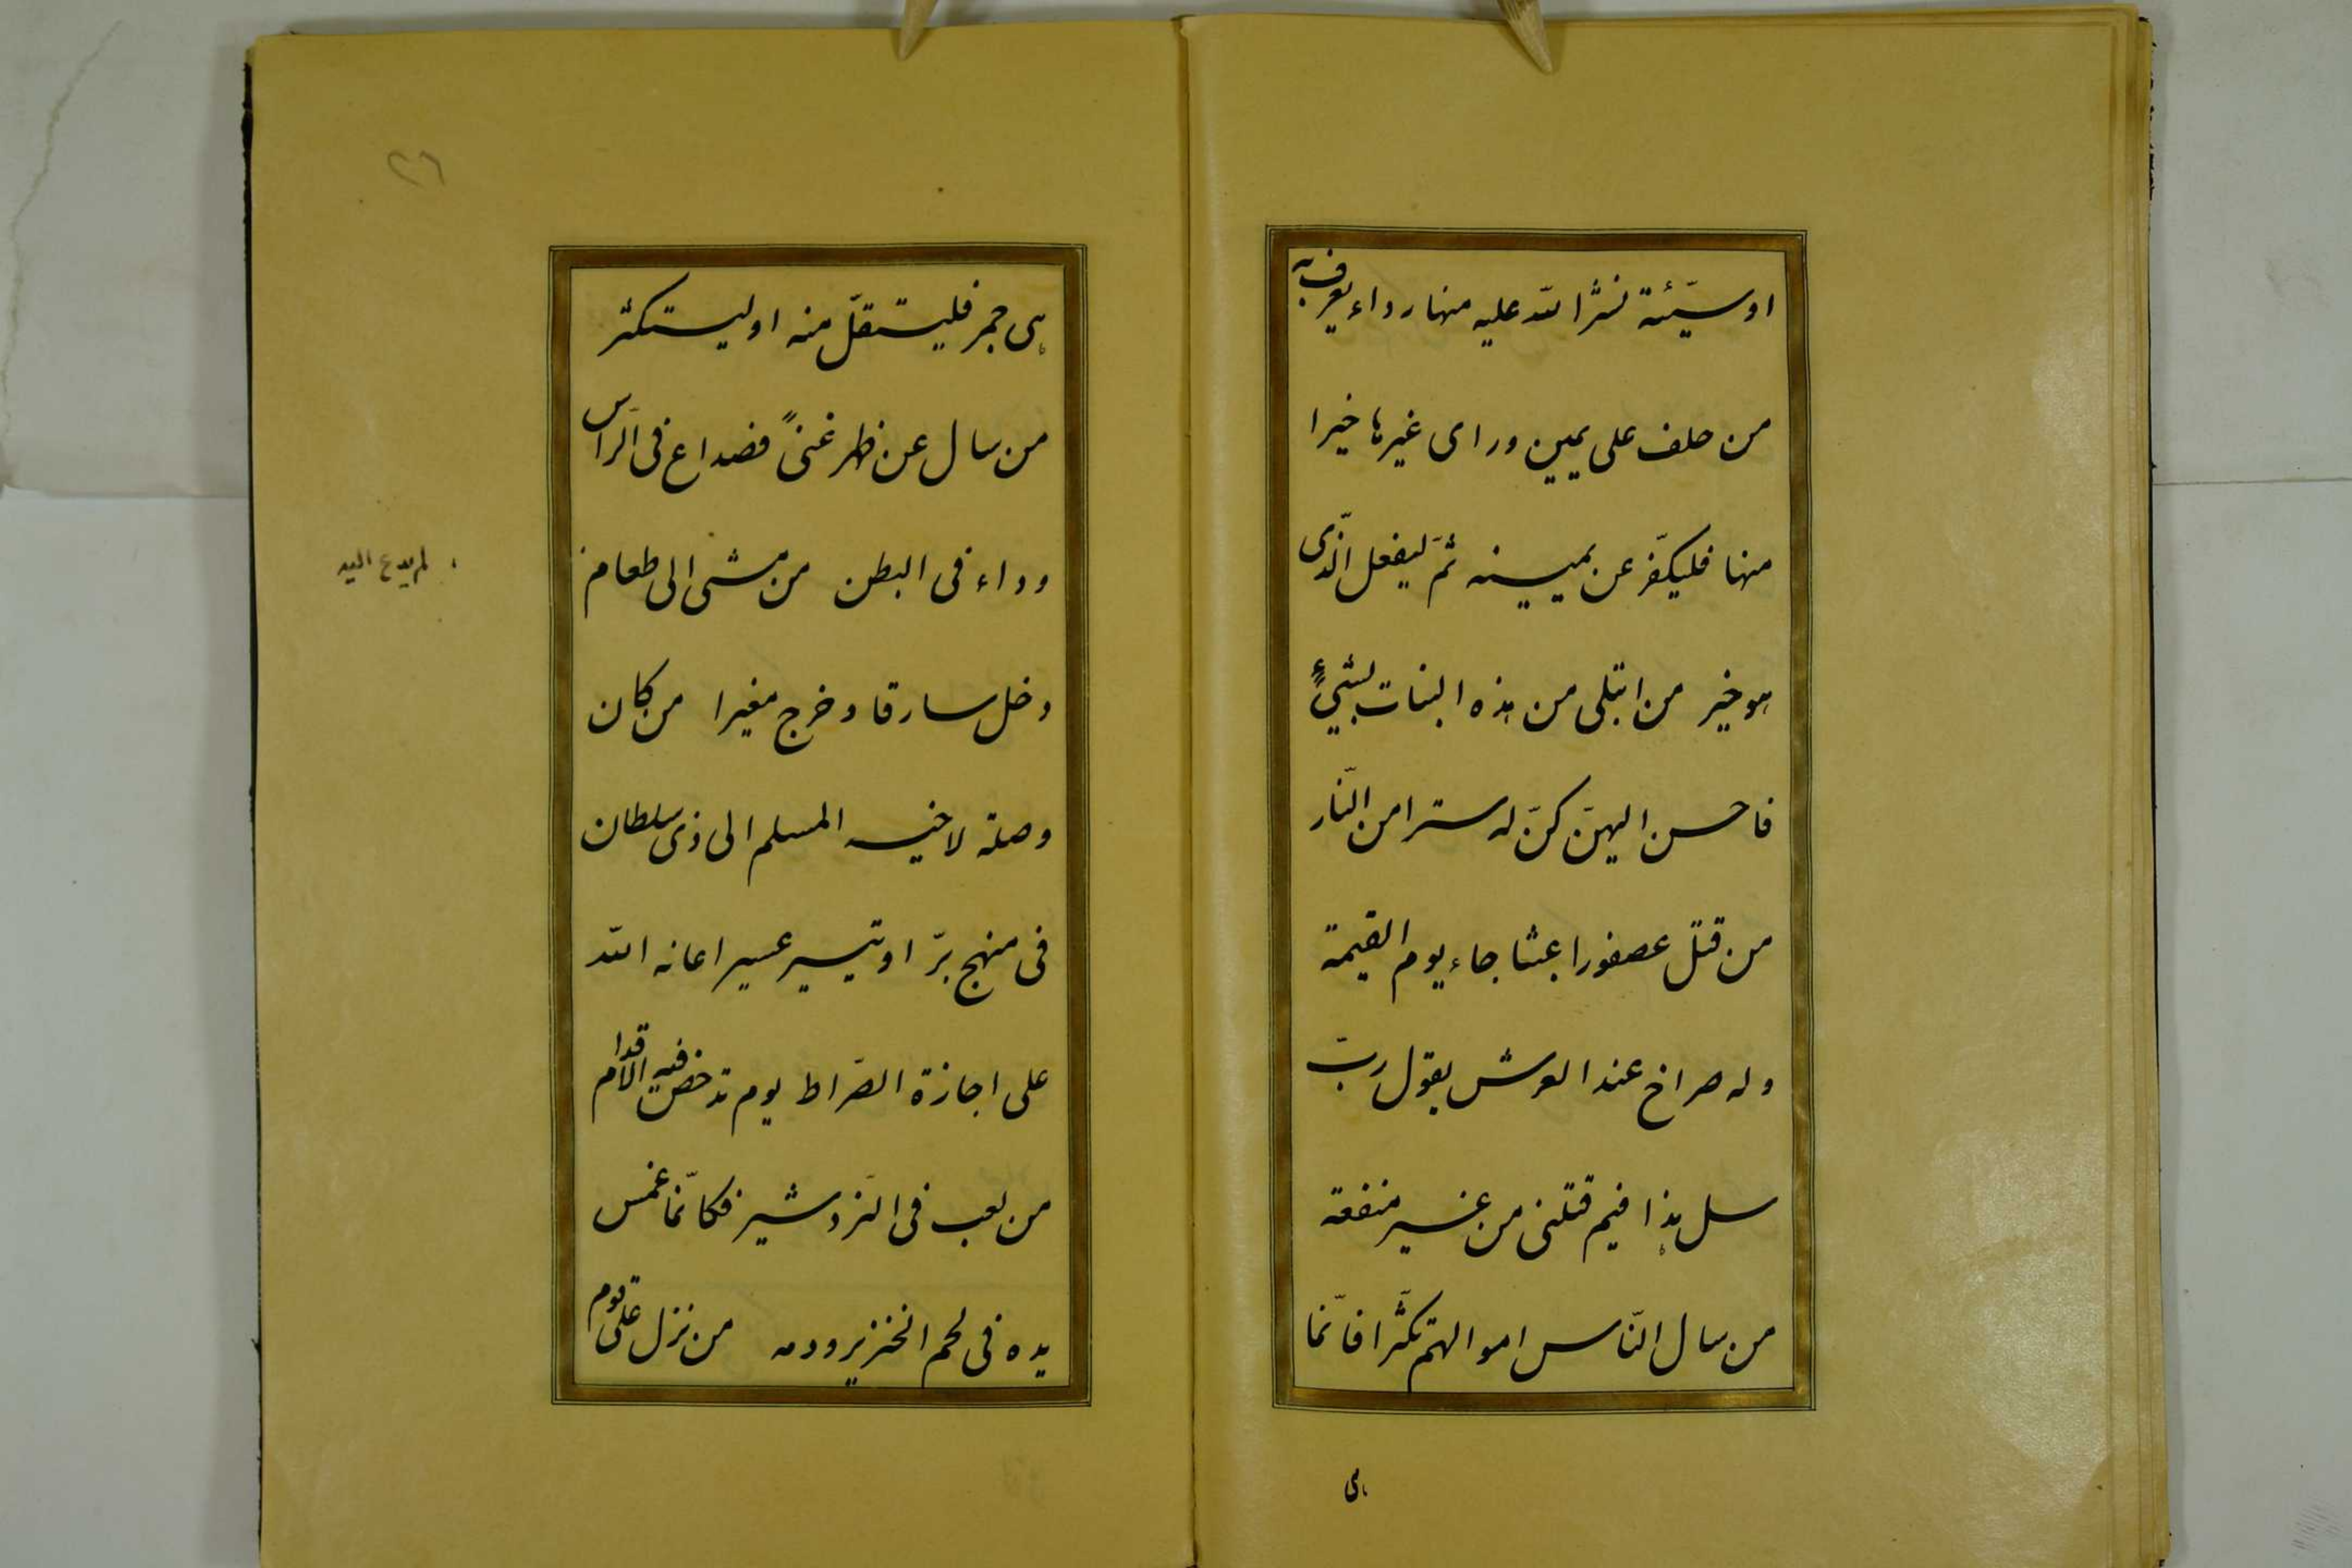 او سيّئة نشر الله عليه منها رداء يعرف به
من حلف على يمين وراى غيرها خيرا
منها فليكفّر عن يمينه ثمّ ليفعل الّذى
هو خير من ابتلى من هذه البنات بشيءٍ
فاحسن اليهنّ كنّ له سترا من النّار
من قتل عصفورا عبثا جاء يوم القيمة
وله صراخ عند العرش يقول ربّ
سل هذا فيم قتلنى من غير منفعة
من سال النّاس اموالهم تكثّرا فانّما
هى
٢٦
هى جمر فليستقلّ منه او ليستكثر
من سال عن ظهر غنىً فصداع فى الرّاس
وداء فى البطن من مشى الى طعام
لم يدع اليه
دخل سارقا وخرج مغيرا من كان
وصلة لاخيه المسلم الى ذى سلطان
فى منهج برّ او تيسير عسير اعانه الله
على اجازة الصّراط يوم تدحض فيه الاقدام
من لعب فى النّردشير فكانّما غمس
يده فى لحم الخنزير ودمه من نزل على قوم